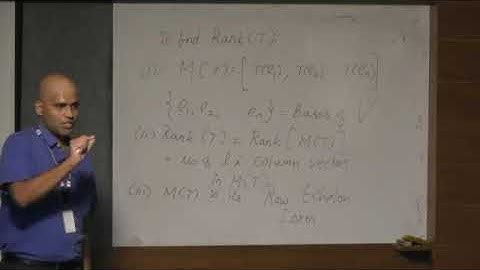 To find Rank(T):
(i) M(T) = [T(e₁), T(e₂) T(eₙ)]
{e₁, e₂, eₙ} = Bases of V
(ii) Rank(T) = Rank[M(T)]
= no of l.i column vectors
in M(T)
(iii) M(T) to Row Echelon
Form